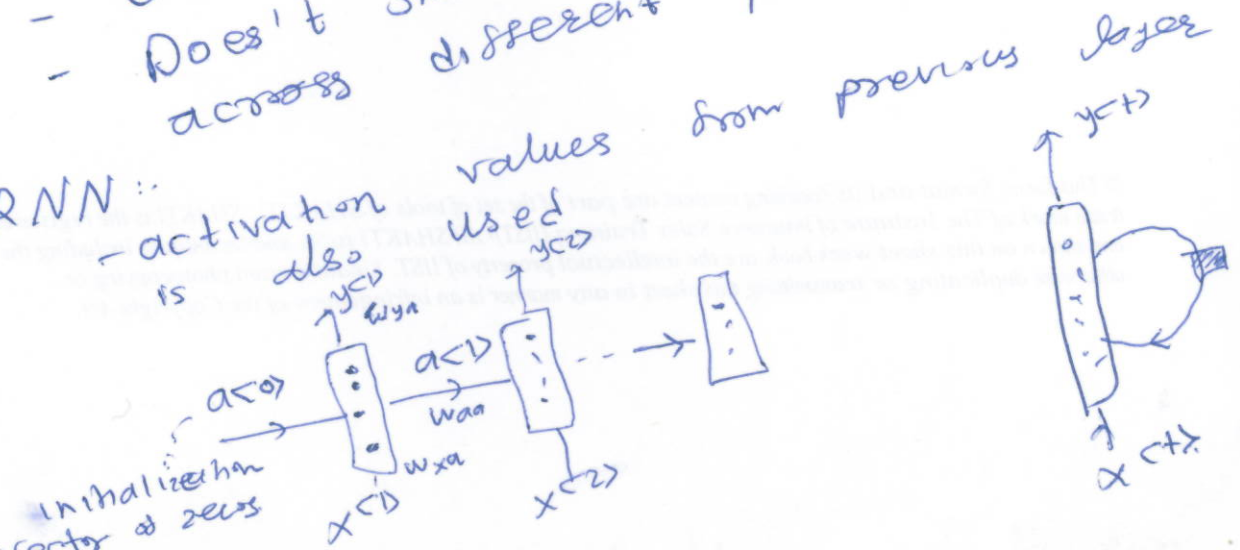 - Doesn't
across different
RNN :-
- activation values from previous layer
is also used
y<1>
y<2>
y<t>
Wya
a<0>
a<1>
Waa
Wxa
initialization
vector of zeros
x<1>
x<2>
x<t>